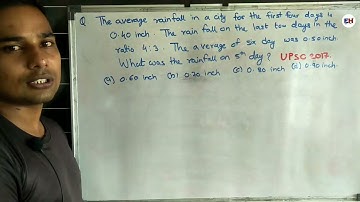 Q The average rainfall in a city for the first four days is
0.40 inch. The rain fall on the last two days in the
ratio 4:3. The average of six day was 0.50 inch.
What was the rainfall on 5th day? UPSC 2017.
(a) 0.60 inch (b) 0.70 inch (c) 0.80 inch (d) 0.90 inch.
EH